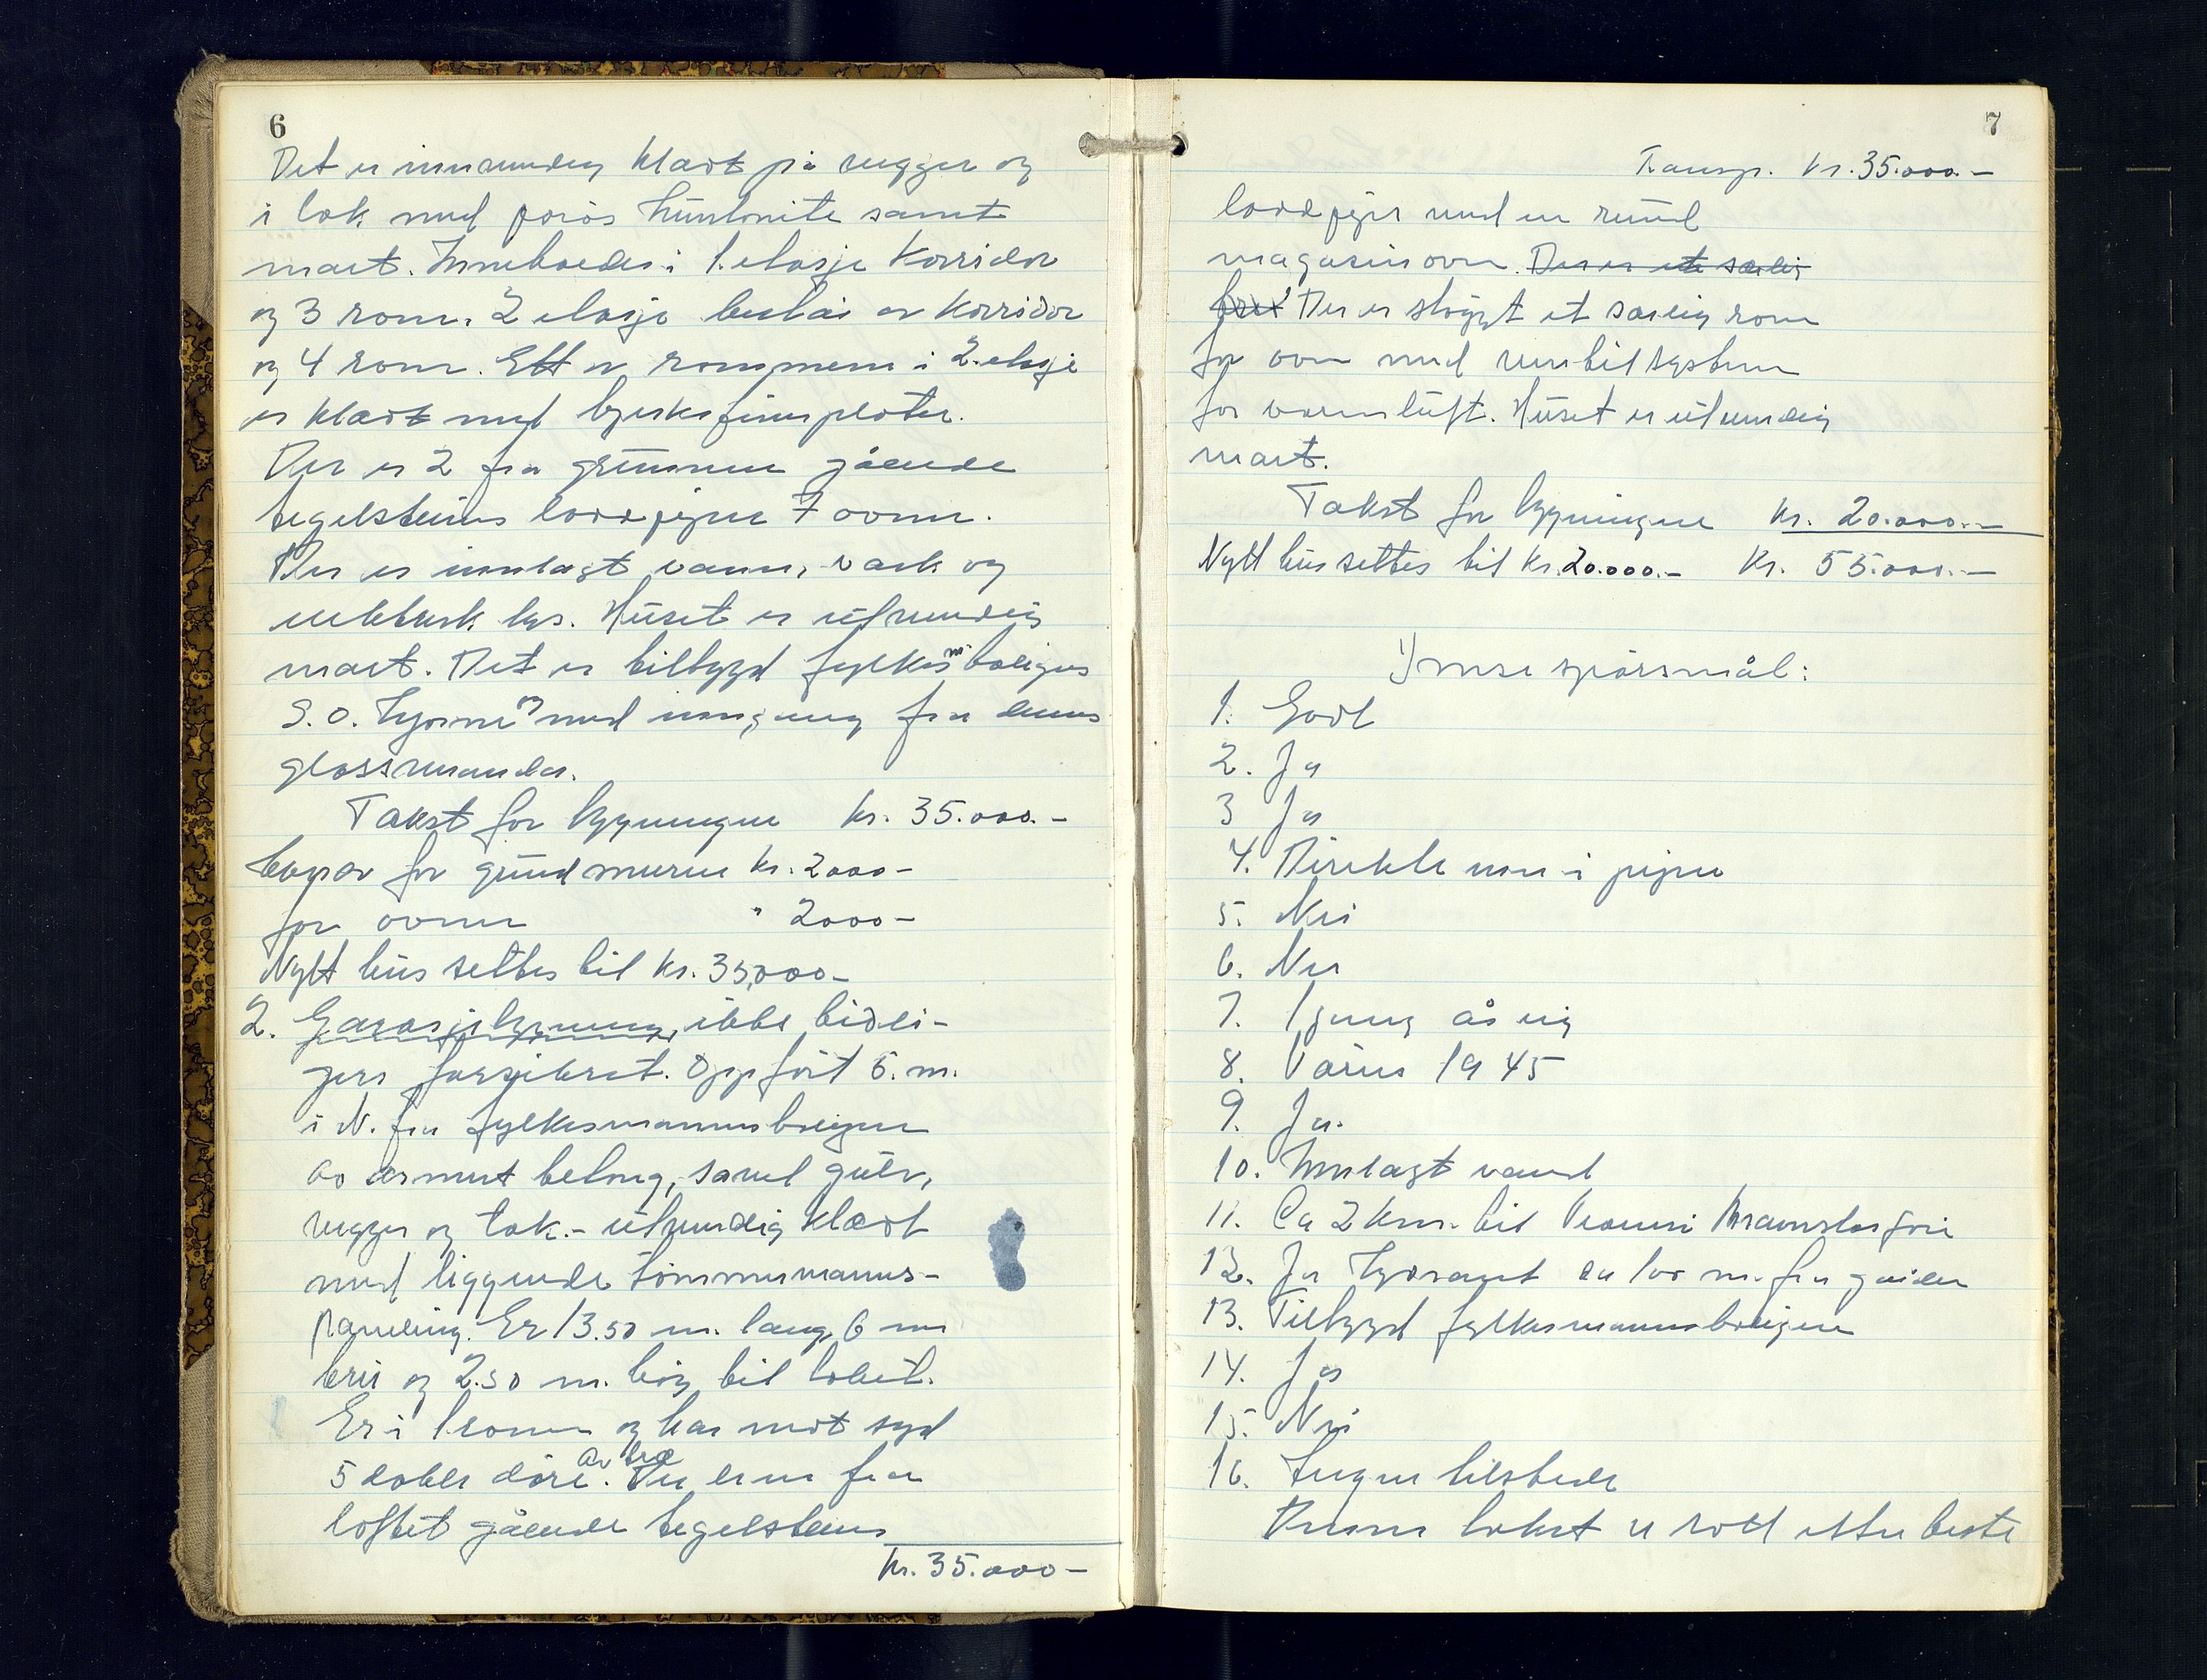 6
Det er innvendig klædt på vegger og
i tak med porøs huntonite samt
malt. Inneholder i 1. etasje korridor
og 3 rom. 2 etasje består av korridor
og 4 rom. Ett av rommene i 2. etasje
er klædt med bjerkefinerplater.
Der er 2 fra grunnen gående
tegelsteins loddpiper 7 ovner.
Der er innlagt vann, vask og
elektrisk lys. Huset er utvendig
malt. Det er tilbygd fylkesm.boligens
S.O. hjørne med inngang fra dens
glassveranda.
Takst for bygningen kr. 35.000.-
Herav for grundmuren kr. 2000-
for ovner " 2000-
Nytt hus settes til kr. 35,000-
2. Garasjebygning, ikke tidli-
gere forsikret. Oppført 5. m.
i N. fra fylkesmannsboligen
av armert betong, såvel gulv,
vegger og tak.- utvendig klædt
med liggende tømmermanns-
paneling. Er 13.50 m. lang, 6 m
brei og 2.50 m. høg til taket.
Er i 1 rom og har mot syd
5 doble døre av tre. Der er en fra
loftet gående tegelsteins
kr. 35.000-
7
Transp. kr. 35.000.-
loddpipe med en rund
magasinovn. Der er ete særlig
Der er sløyft et særlig rom
for ovn med ventilsystem
for varmluft. Huset er utvendig
malt.
Takst for bygningen kr. 20.000.-
Nytt hus settes til kr. 20.000.- Kr. 55.000.-
Ymse spørsmål:
1. Godt
2. Ja
3 Ja
4. Direkte inn i pipen
5. Nei
6. Nei
7. 1 gang årlig
8. Våren 1945
9. Ja.
10. Innlagt vand
11. Ca 2 km. til
12. Ja Hydrant ca 100 m. fra garden
13. Tilbygd fylkesmannsboligen
14. Ja
15. Nei
16. Ingen tilstede
Denne takst er satt etter beste